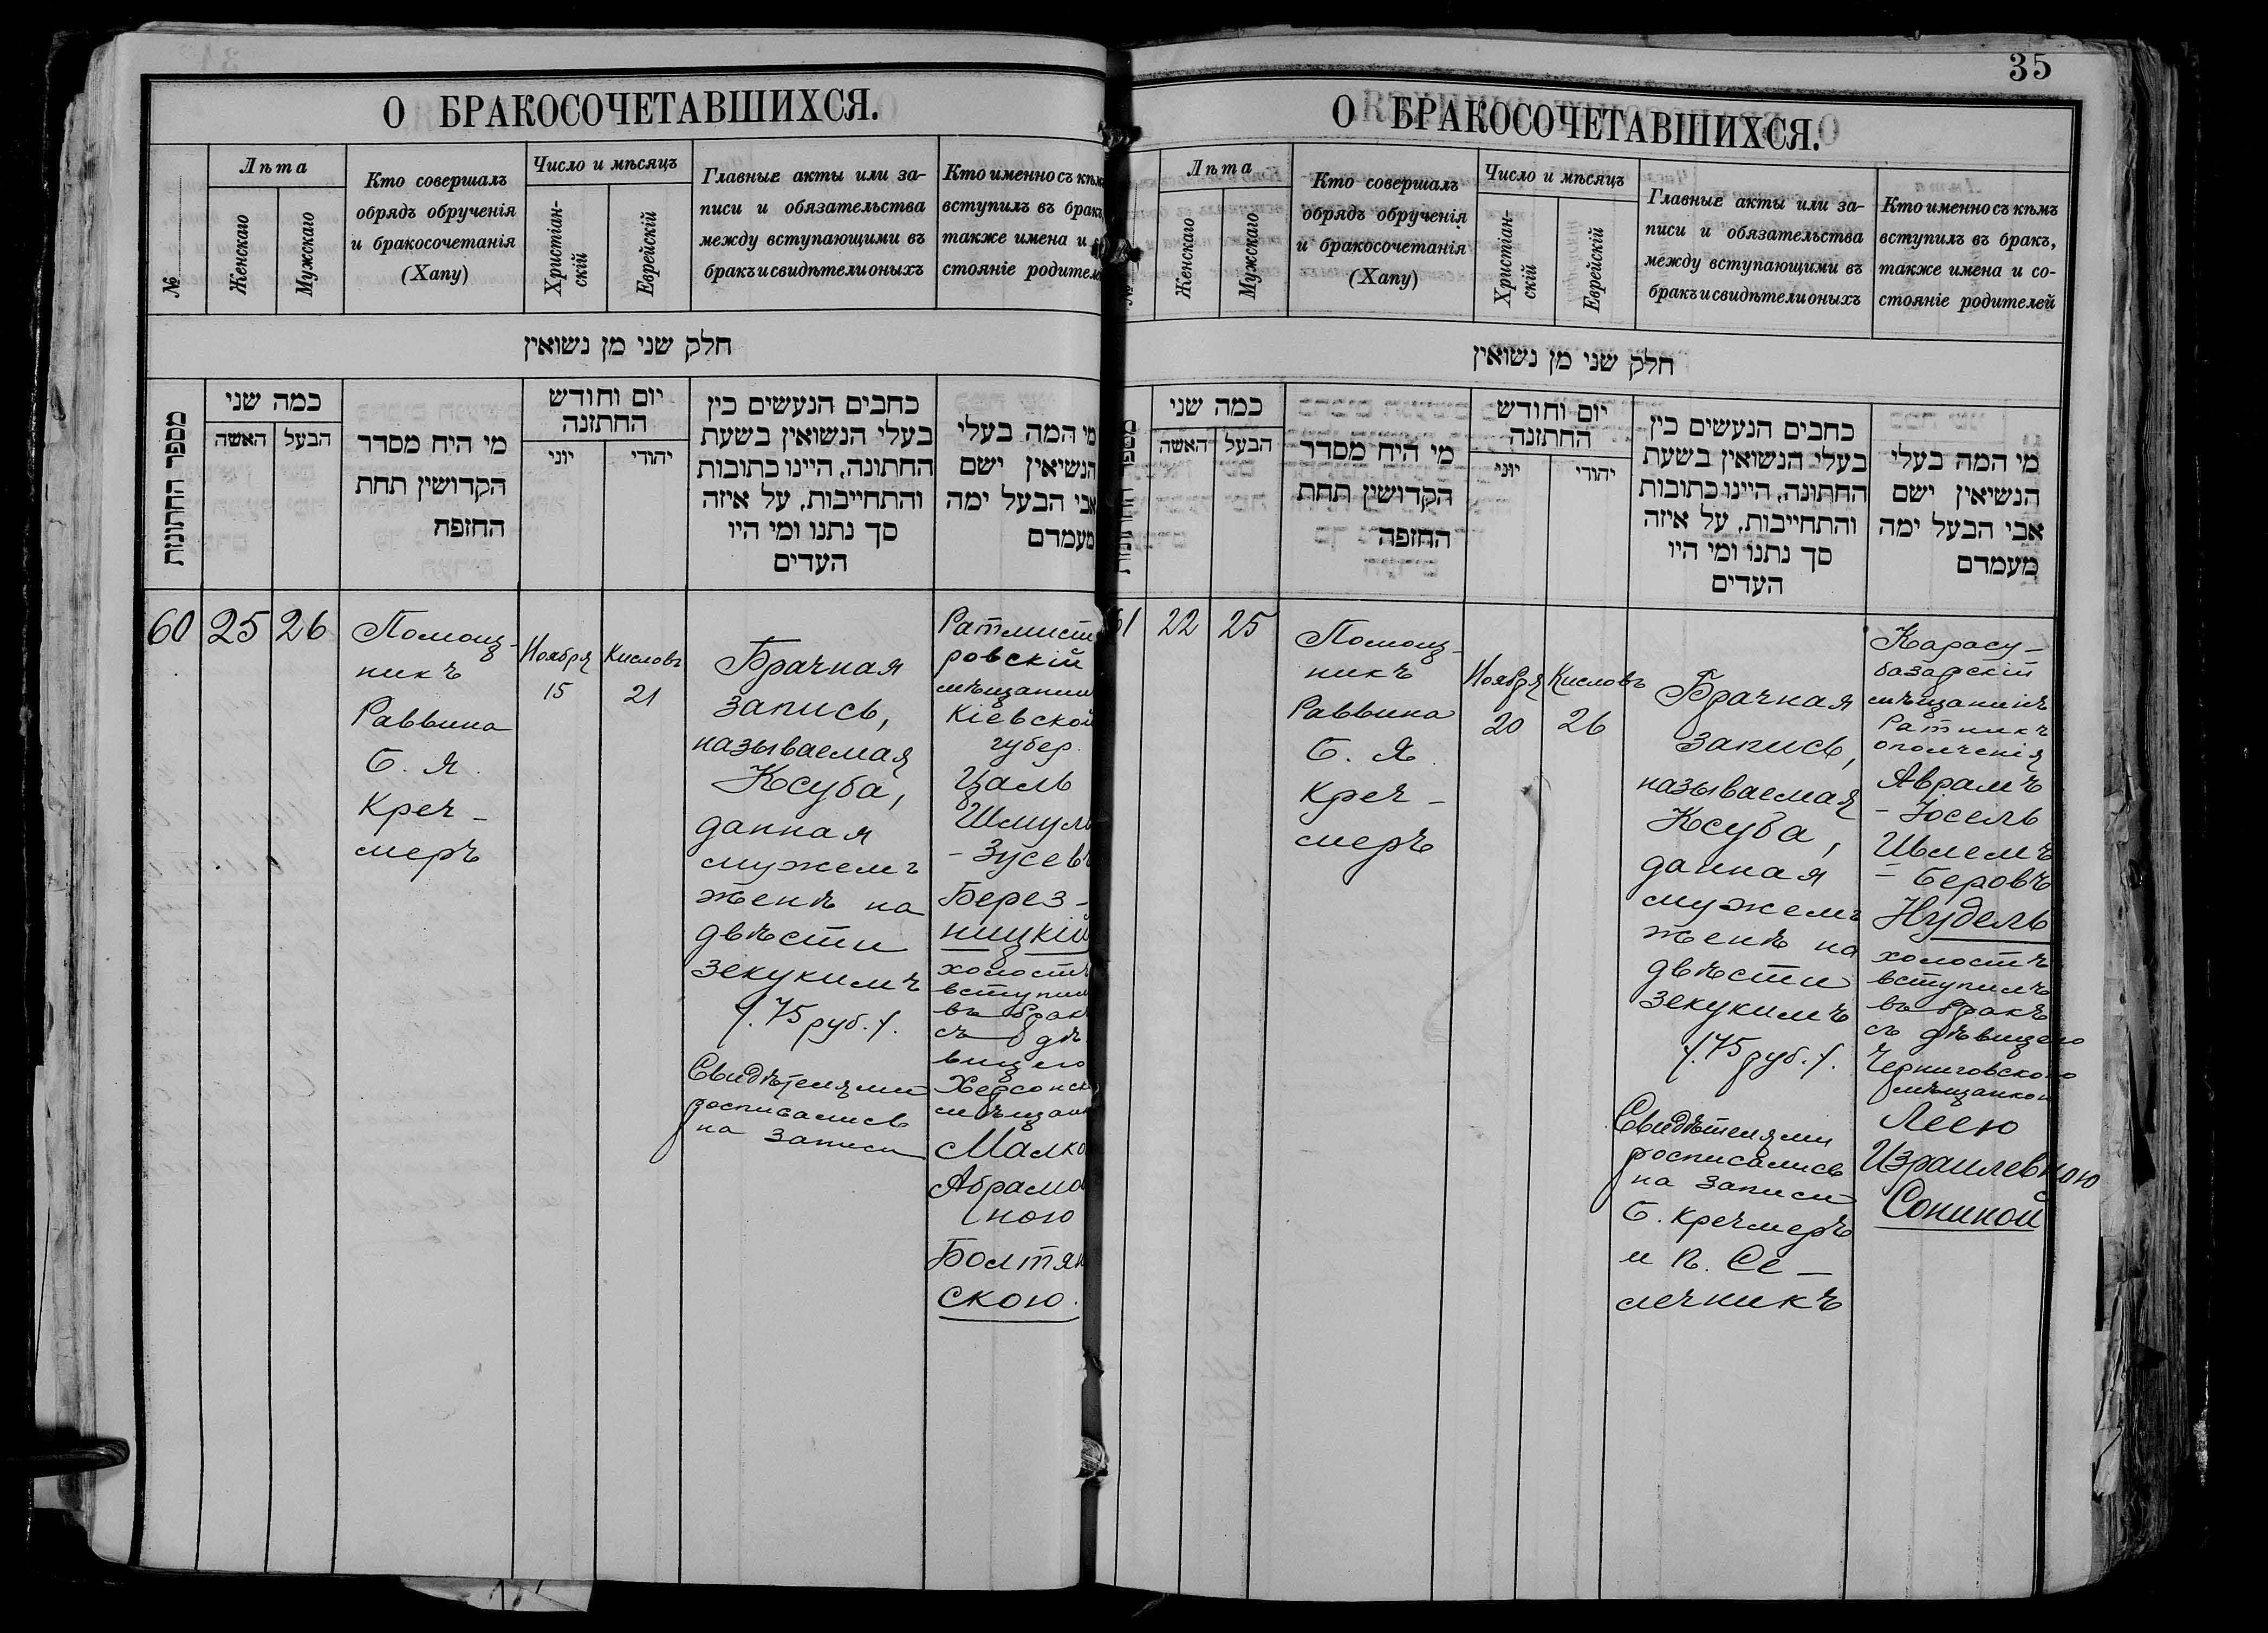 О БРАКОСОЧЕТАВШИХСЯ.
№
Лѣта
Женскаго
Мужскаго
Кто совершалъ
обрядъ обрученія
и бракосочетанія
(Хапу)
Число и мѣсяцъ
Христіан-
скій
Еврейскій
Главные акты или за-
писи и обязательства
между вступающими въ
бракъ и свидѣтели оныхъ
Кто именно съ кѣмъ
вступилъ въ бракъ,
также имена и
стояніе родителе
חלק שני מן נשואין
מספר החתונות
כמה שני
האשה
הבעל
מי היח מסדר
הקדושין תחת
החופה
יום וחודש
החתונה
יוני
יהודי
כחבים הנעשים כין
בעלי הנשואין בשעת
החתונה, היינו כתובות
והתחייבות, על איזה
סך נתנו ומי היו
העדים
מי המה בעלי
הנשיאין ישם
אבי הבעל ימה
מעמדם
60
25
26
Помощ-
никъ
Раввина
Б. Я.
Креч-
меръ
Ноября
15
Кисловъ
21
Брачная
запись,
называемая
Ксуба,
данная
мужемъ
женѣ на
двѣсти
зекукимъ
/.75 руб./.
Свидѣтелями
росписались
на записи
Ратмист
ровскій
мѣщанин
Кіевской
губер.
Цаль
Шмуль
-Зусевъ
Берез-
ницкій
холостъ
вступил
въ брак
съ дѣ-
вицею
Херсонск
мѣщан
Малко
Абрамо
ною
Болтян
скою.
35
О БРАКОСОЧЕТАВШИХСЯ.
№
Лѣта
Женскаго
Мужскаго
Кто совершалъ
обрядъ обрученія
и бракосочетанія
(Хапу)
Число и мѣсяцъ
Христіан-
скій
Еврейскій
Главные акты или за-
писи и обязательства
между вступающими въ
бракъ и свидѣтели оныхъ
Кто именно съ кѣмъ
вступилъ въ бракъ,
также имена и со-
стояніе родителей
חלק שני מן נשואין
כמה שני
האשה
הבעל
מי היח מסדר
הקדושין תחת
החופה
יום וחודש
החתונה
יוני
יהודי
כחבים הנעשים כין
בעלי הנשואין בשעת
החתונה, היינו כתובות
והתחייבות, על איזה
סך נתנו ומי היו
העדים
מי המה בעלי
הנשיאין ישם
אבי הבעל ימה
מעמדם
61
22
25
Помощ-
никъ
Раввина
Б. Я.
Креч-
меръ
Ноября
20
Кисловъ
26
Брачная
запись,
называемая
Ксуба,
данная
мужемъ
женѣ на
двѣсти
зекукимъ
/.75 руб./.
Свидѣтелями
росписались
на записи
Б. Кречмеръ
и П. Се-
лечникъ
Карасу-
базарскій
мѣщанинъ
Ратникъ
ополченія
Аврамъ
-Юсель
Швлемъ
-Беровъ
Нудель
холостъ
вступилъ
въ бракъ
съ дѣвицею
Черниговскою
мѣщанкою
Леею
Израилевною
Сониной